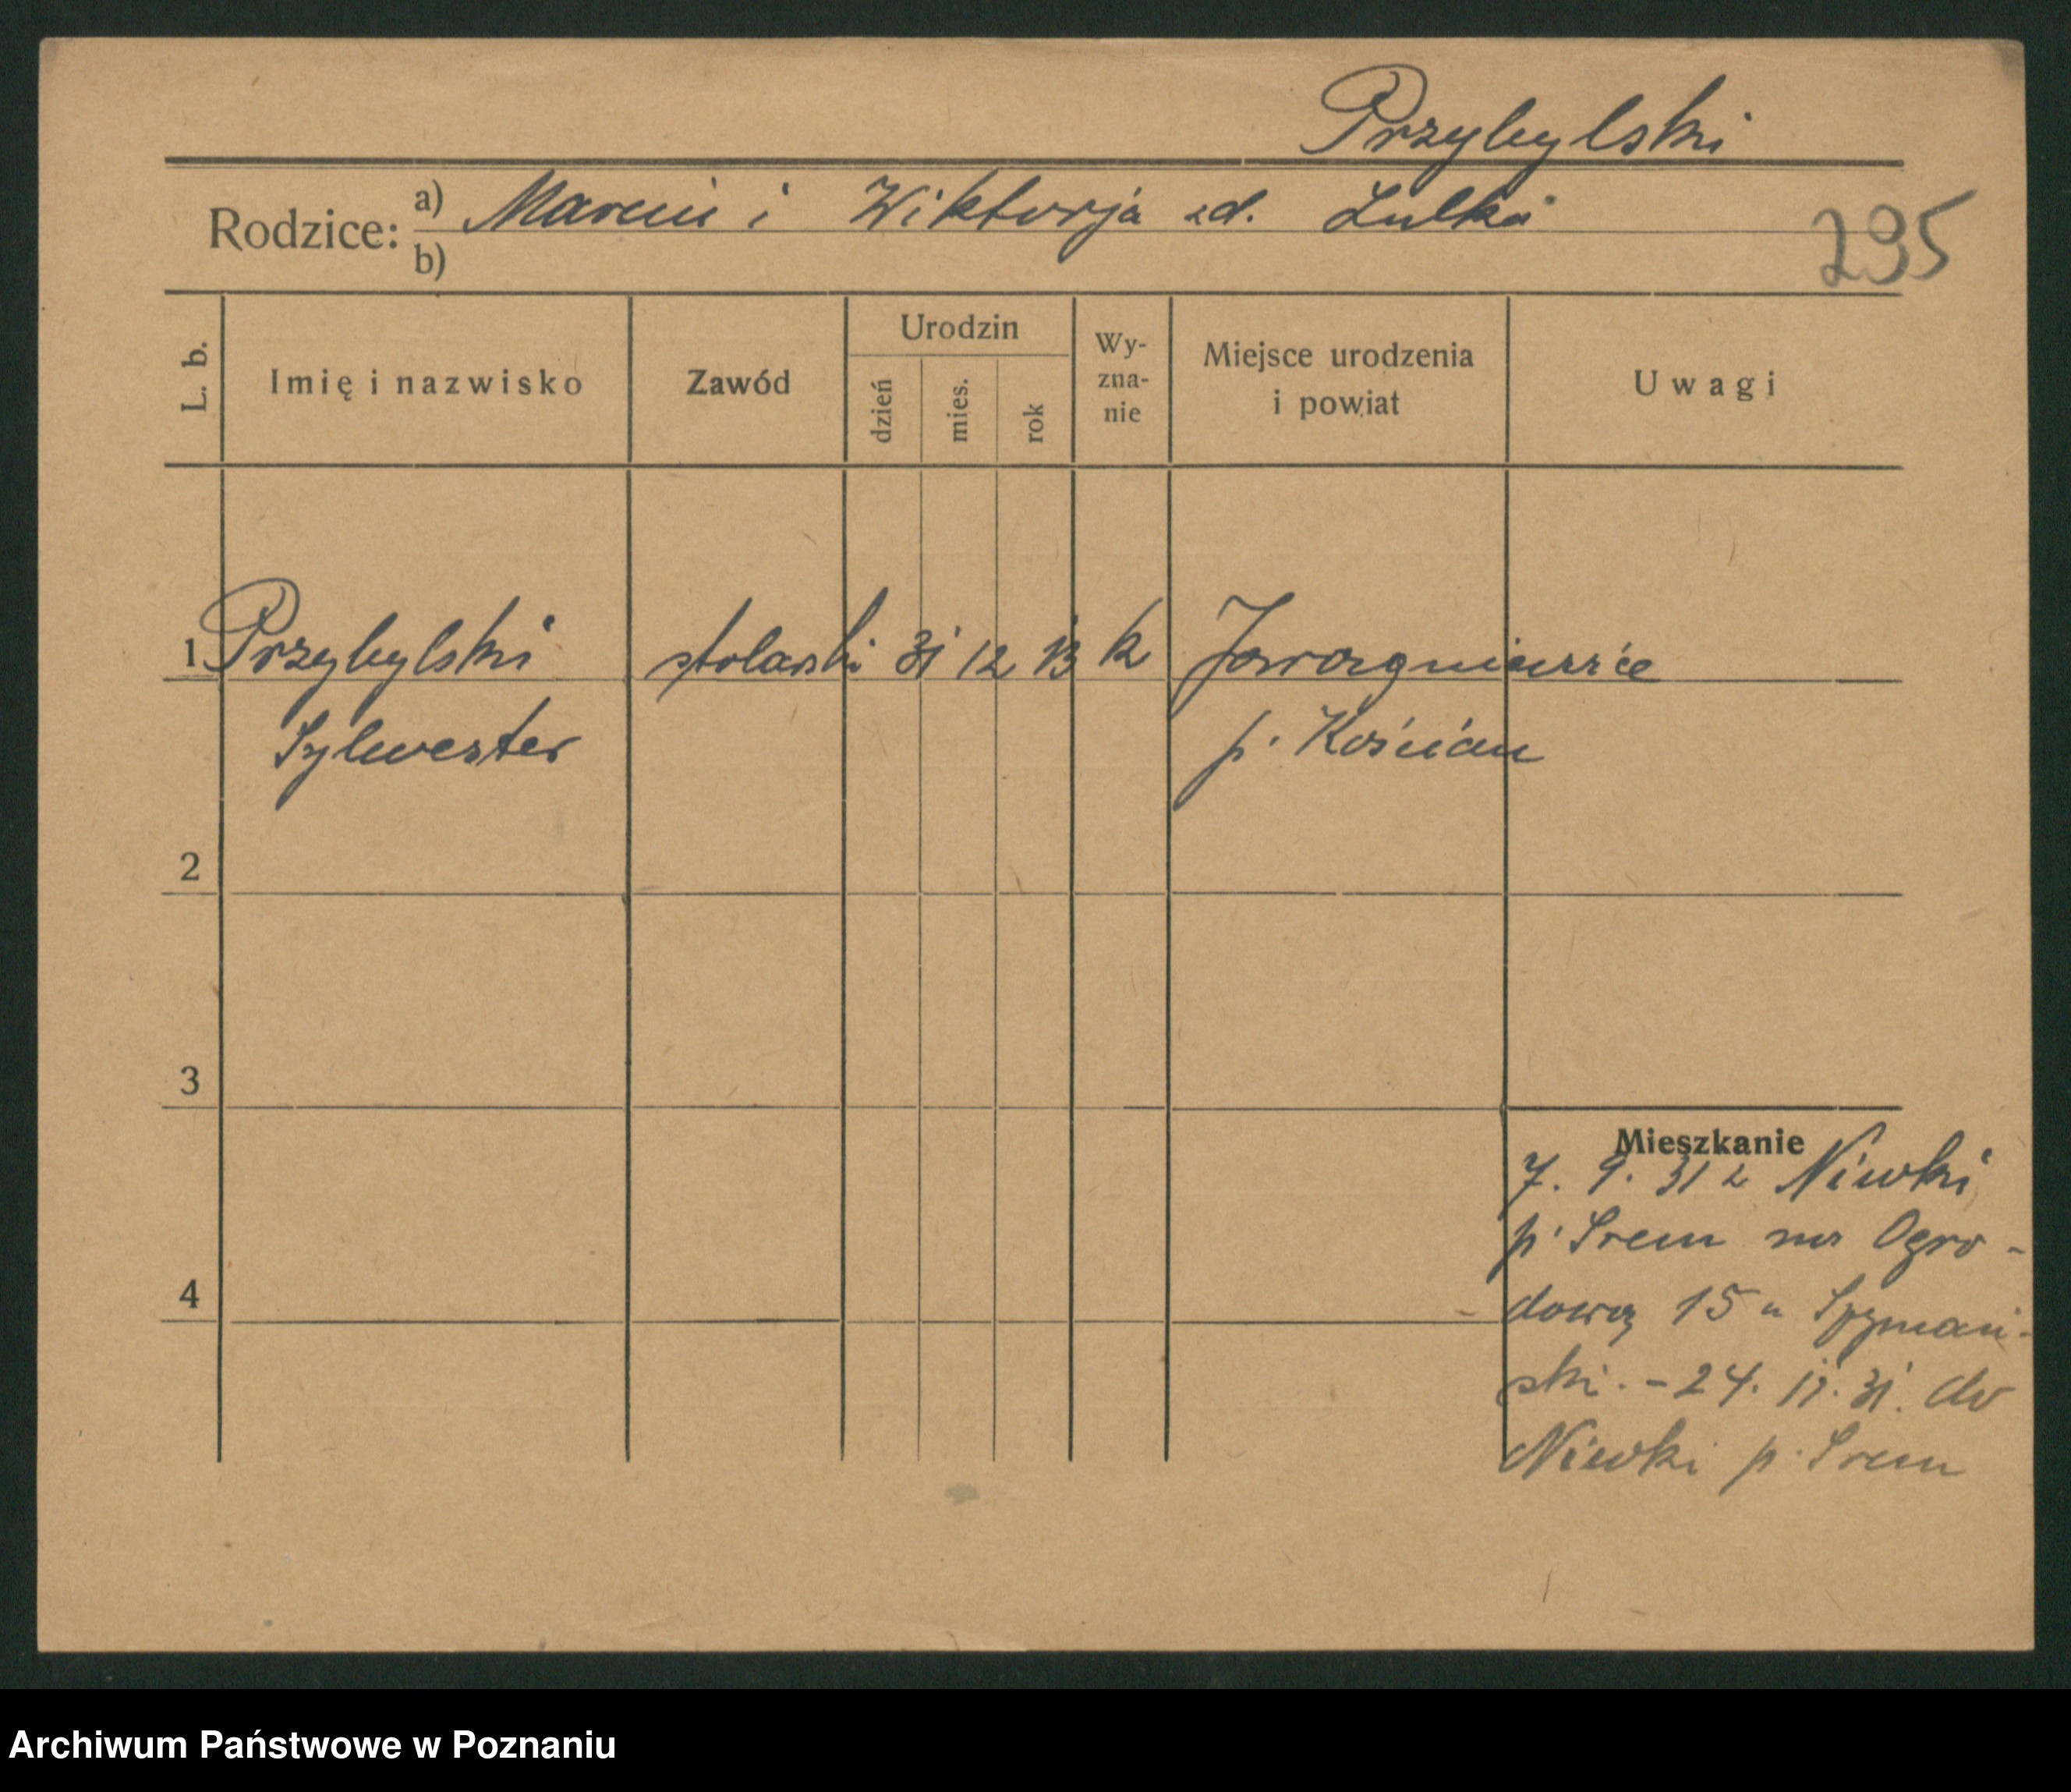 Przybylski
Rodzice: a) Marcin i Wiktorja zd. Lulka
b)
295
L. b. Imię i nazwisko Zawód Urodzin dzień mies. rok Wyznanie Miejsce urodzenia i powiat Uwagi
1 Przybylski stolarski 31 12 13 k
Sylwester p. Kościan
2
3
4
Mieszkanie
7. 9. 31 z Niwki
p. Srem na Ogro-
dową 15 u
ski. - 24. 11. 31. do
Niwki p. Srem
Archiwum Państwowe w Poznaniu